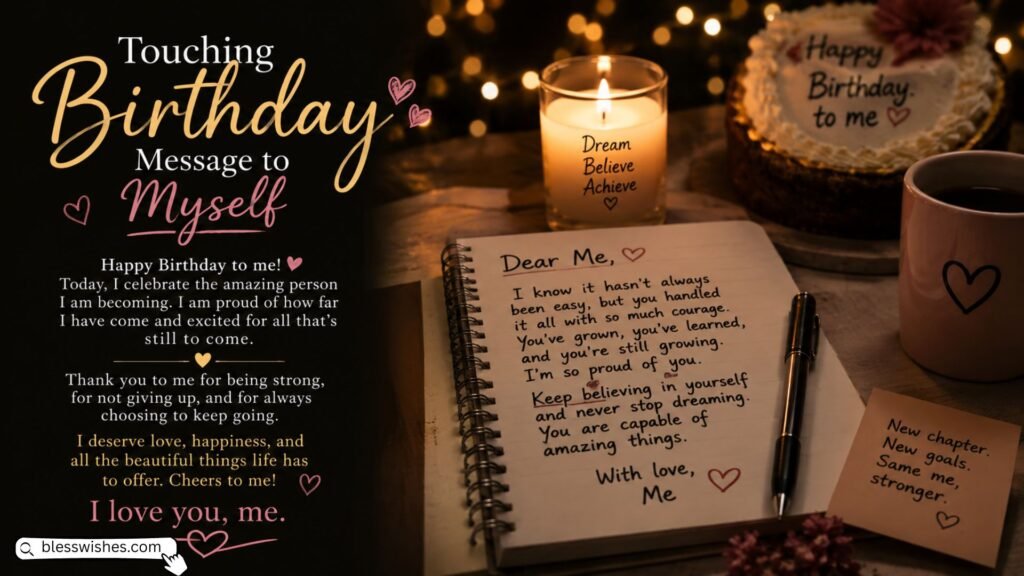 Touching
Birthday
Message to
Myself
Happy Birthday to me!
Today, I celebrate the amazing person
I am becoming. I am proud of how far
I have come and excited for all that's
still to come.
Thank you to me for being strong,
for not giving up, and for always
choosing to keep going.
I deserve love, happiness, and
all the beautiful things life has
to offer. Cheers to me!
I love you, me.
blesswishes.com
Dream
Believe
Achieve
Happy
Birthday.
to me
Dear Me,
I know it hasn't always
been easy, but you handled
it all with so much courage.
You've grown, you've learned,
and you're still growing.
I'm so proud of you.
Keep believing in yourself
and never stop dreaming.
You are capable of
amazing things.
With love,
Me
New chapter.
New goals.
Same me,
stronger.